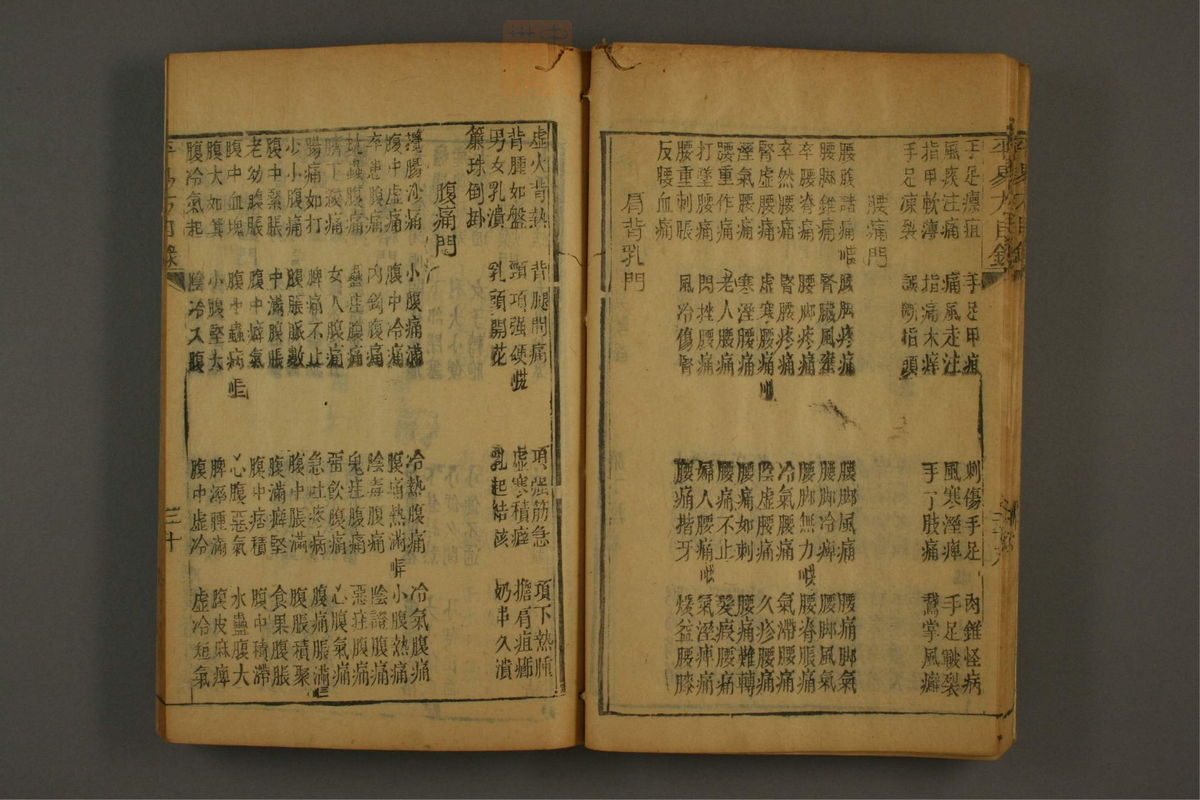 手足瘭疽 手足甲疽 刺傷手足 肉錐怪病
風痰注痛 痛風走注 風寒溼痺 手足皸裂
指甲軟薄 指痛木痒 手丫肢痛 鵞掌風癬
手足凍裂 誤斷指頭
腰痛門
腰腹諸痛 腰脚疼痛 腰脚風痛 腰痛脚氣
腰脚錐痛 腎臟風壅 腰脚冷痺 腰脚風氣
卒腰脊痛 腰脚疼痛 腰脚無力 腰脊脹痛
卒然腰痛 腎腰疼痛 冷氣腰痛 氣滯腰痛
腎虚腰痛 虚寒腰痛 陰虚腰痛 久疹腰痛
溼氣腰痛 寒溼腰痛 腰痛如刺 腰痛難轉
腰重作痛 老人腰痛 腰痛不止 髮瘕腰痛
打墜腰痛 閃挫腰痛 婦人腰痛 氣溼痺痛
腰重刺脹 風冷傷腎 腰痛揩牙 煖益腰膝
反腰血痛
肩背乳門
虚火背熱 背腿間痛 項强筋急 項下熱腫
背腫如盤 頸項强硬 虚寒積癖 擔肩疽癤
男女乳潰 乳頭開花 乳起結核 奶串久潰
簾珠倒掛
腹痛門
攪腸沙痛 小腹痛滿 冷熱腹痛 冷氣腹痛
腹中虚痛 腹中冷痛 腹痛熱滿 小腹熱痛
卒患腹痛 内鈎腹痛 陰毒腹痛 陰證腹痛
蚘蟲腹痛 蠱疰腹痛 鬼疰腹痛 惡疰腹痛
臍下腹痛 女人腹痛 酒飲腹痛 心腹氣痛
腸痛如打 脾痛不止 急疰疼病 腹痛脹滿
小小腹痛 腹脹脈數 腹中脹滿 腹脹積聚
腹中緊脹 中滿腹脹 腹滿癖堅 食果腹脹
老幼腹脹 腹中癖氣 腹中痞積 腹中積滯
腹中血塊 腹中蟲病 心腹惡氣 水蠱腹大
腹大如箕 小腹堅大 脾溼腫滿 腹皮麻痺
腹冷氣起 陰冷入腹 腹中虚冷 虚冷短氣
三十